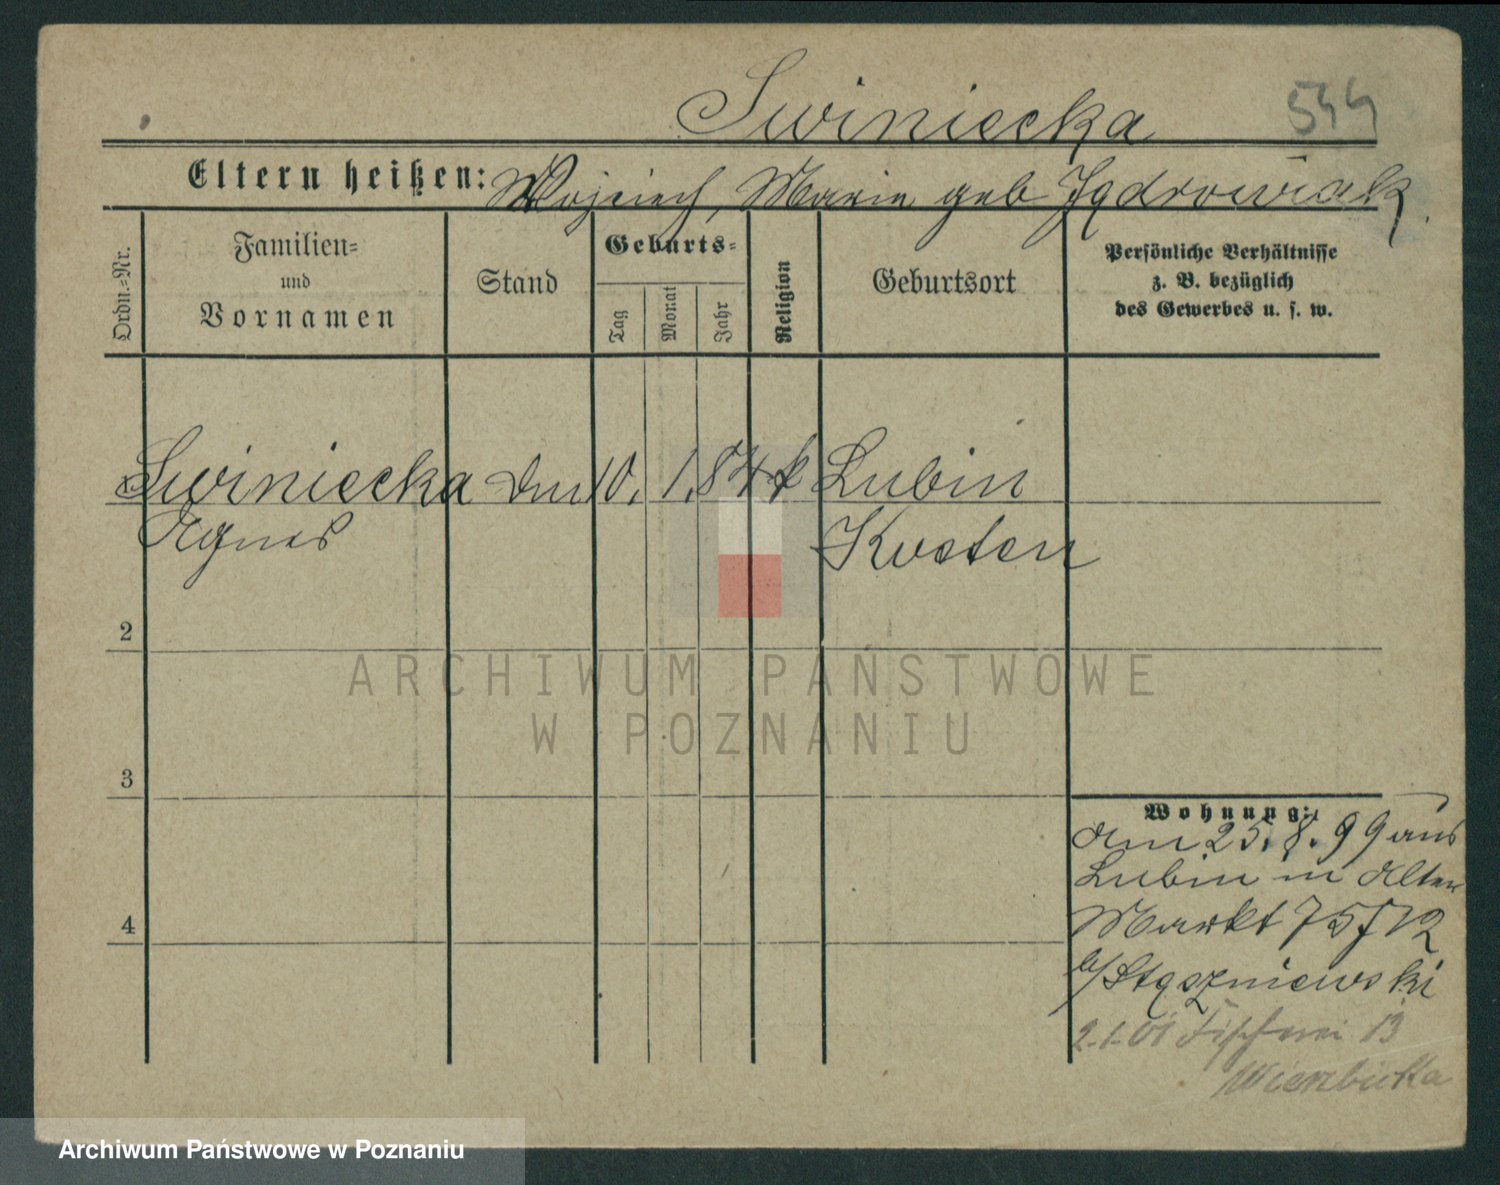 Swiniecka
544
Eltern heißen: Wojciech, Marie geb Jądrowiak
Ordn.-Nr.
Familien-
und
Vornamen
Stand
Geburts-
Tag
Monat
Jahr
Religion
Geburtsort
Persönliche Verhältnisse
z. B. bezüglich
des Gewerbes u. s. w.
1 Swiniecka 10. 1. 84 k Lubin
Agnes Kosten
2
3
4
Wohnung:
Am 25. 8. 99 aus
Lubin in Alten
Markt 75/72
b/Stąszniewski
2.1.01 Fischerei 13
Wierzbicka
ARCHIWUM PAŃSTWOWE
W POZNANIU
Archiwum Państwowe w Poznaniu